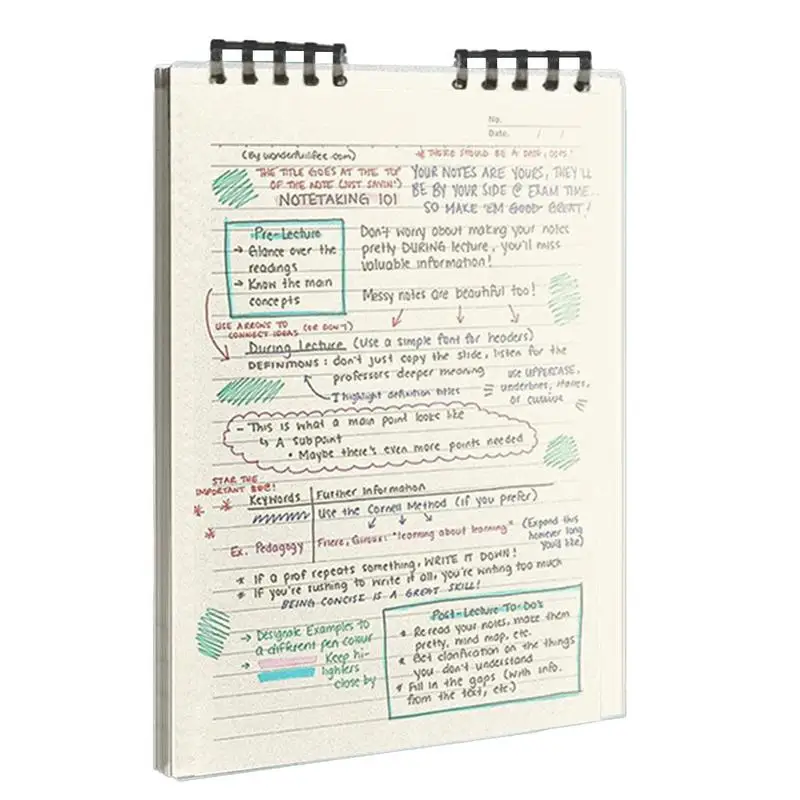 No.
Date. / /
(By wonderfullifee.com)
* THERE SHOULD BE A DATE, OOPS!
THE TITLE GOES AT THE TOP
OF THE NOTE (JUST SAYIN!)
NOTETAKING 101
YOUR NOTES ARE YOURS, THEY'LL
BE BY YOUR SIDE @ EXAM TIME...
SO MAKE 'EM GOOD GREAT!
Pre-Lecture
→ Glance over the
readings
→ Know the main
concepts
Don't worry about making your notes
pretty DURING lecture, you'll miss
valuable information!
Messy notes are beautiful too!
USE ARROWS TO (OR DON'T)
CONNECT IDEAS
During Lecture (Use a simple font for headers)
DEFINITIONS: don't just copy the slide, listen for the
professors deeper meaning
I highlight definition titles
USE UPPERCASE,
underlines,
or cursive
- This is what a main point looks like
↳ A subpoint
• Maybe there's even more points needed
STAR THE
IMPORTANT
Keywords Further Information
Use the Cornell Method (if you prefer)
Ex. Pedagogy Friere, Giroux: "learning about learning" (Expand this
however long
you'd like)
* If a prof repeats something, WRITE IT DOWN!
* If you're rushing to write it all, you're writing too much
BEING CONCISE IS A GREAT SKILL!
→ Designate Examples to
a different pen colour
→ Keep hi-
lighters
close by
Post-Lecture To-Do's
* Reread your notes, make them
pretty, mind map, etc.
* Get clarification on the things
you don't understand
* Fill in the gaps (with info.
from the text, etc.)